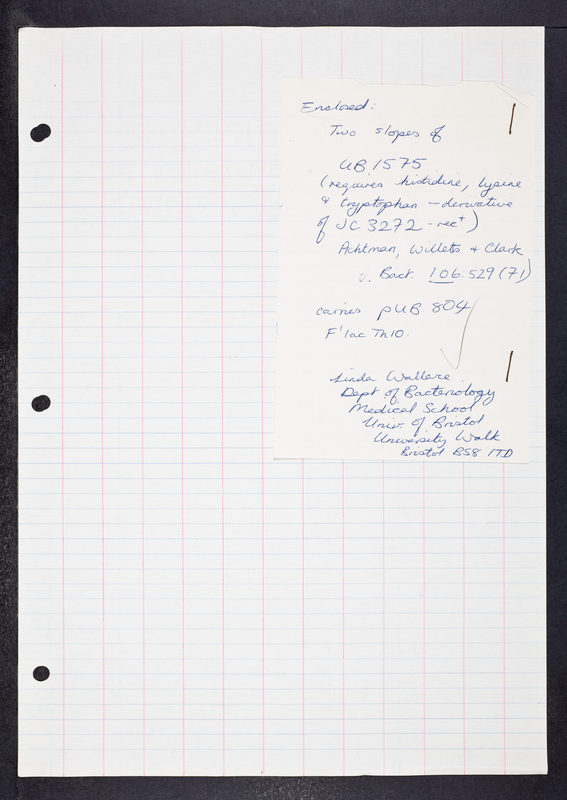 Enclosed:
Two slopes of
UB 1575
(requires histidine, lysine
& tryptophan - derivative
of JC 3272 - rec⁺)
Achtman, Willets & Clark
J. Bact. 106:529 (71)
carries pUB 804
F'lac Tn10.
Linda Wallace.
Dept of Bacteriology
Medical School
Univ. of Bristol
University Walk
Bristol BS8 1TD